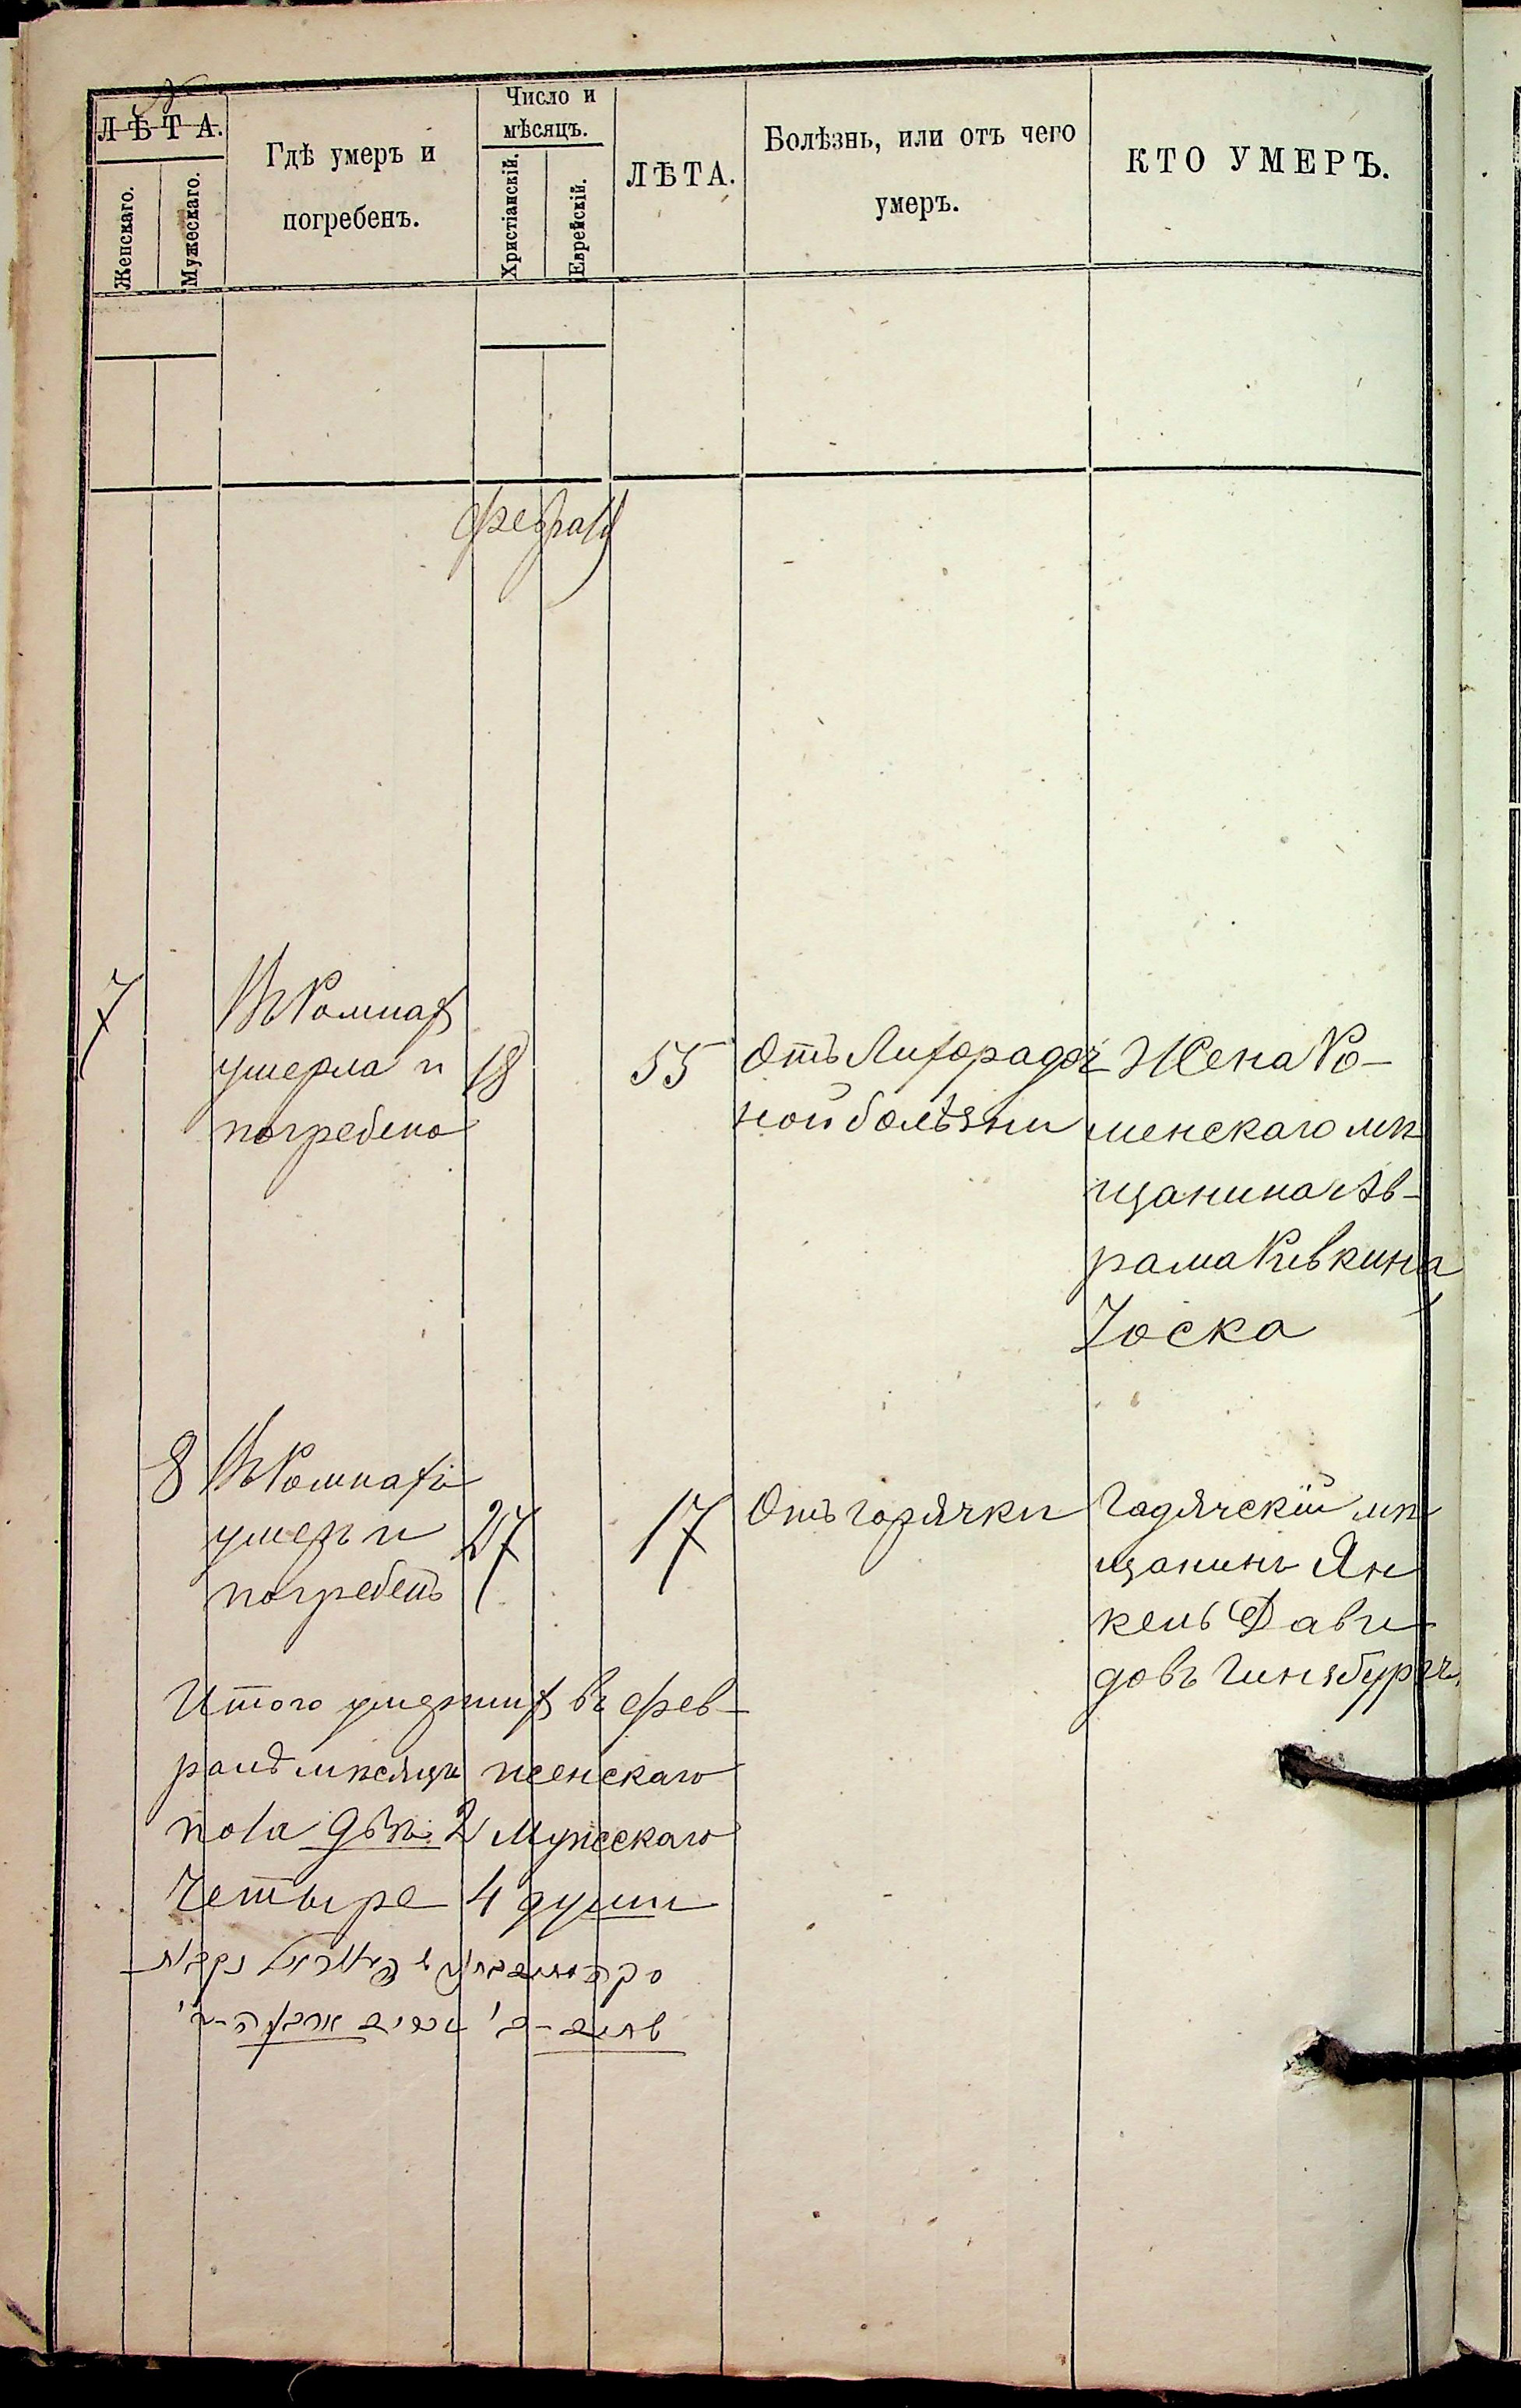 ЛѢТА.
Женскаго.
Мужескаго.
Гдѣ умеръ и
погребенъ.
Число и
мѣсяцъ.
Христіанскій.
Еврейскій.
ЛѢТА.
Болѣзнь, или отъ чего
умеръ.
КТО УМЕРЪ.
февраль
7
Въ Ромнах
умерла и
погребена
18
55
Отъ Лихорадоч
ной болѣзни
Жена Ро-
менскаго мѣ
щанина Ав-
рама Кивкина
Јоска
8
Въ Ромнахъ
умеръ и
погребенъ
27
17
Отъ горячки
Гадячскій мѣ
щанинъ Ян
кель Дави
довъ Гинзбургъ
Итого умерших въ фев-
ралѣ мѣсяцѣ женскаго
пола двѣ. 2 Мужескаго
Четыре 4 души